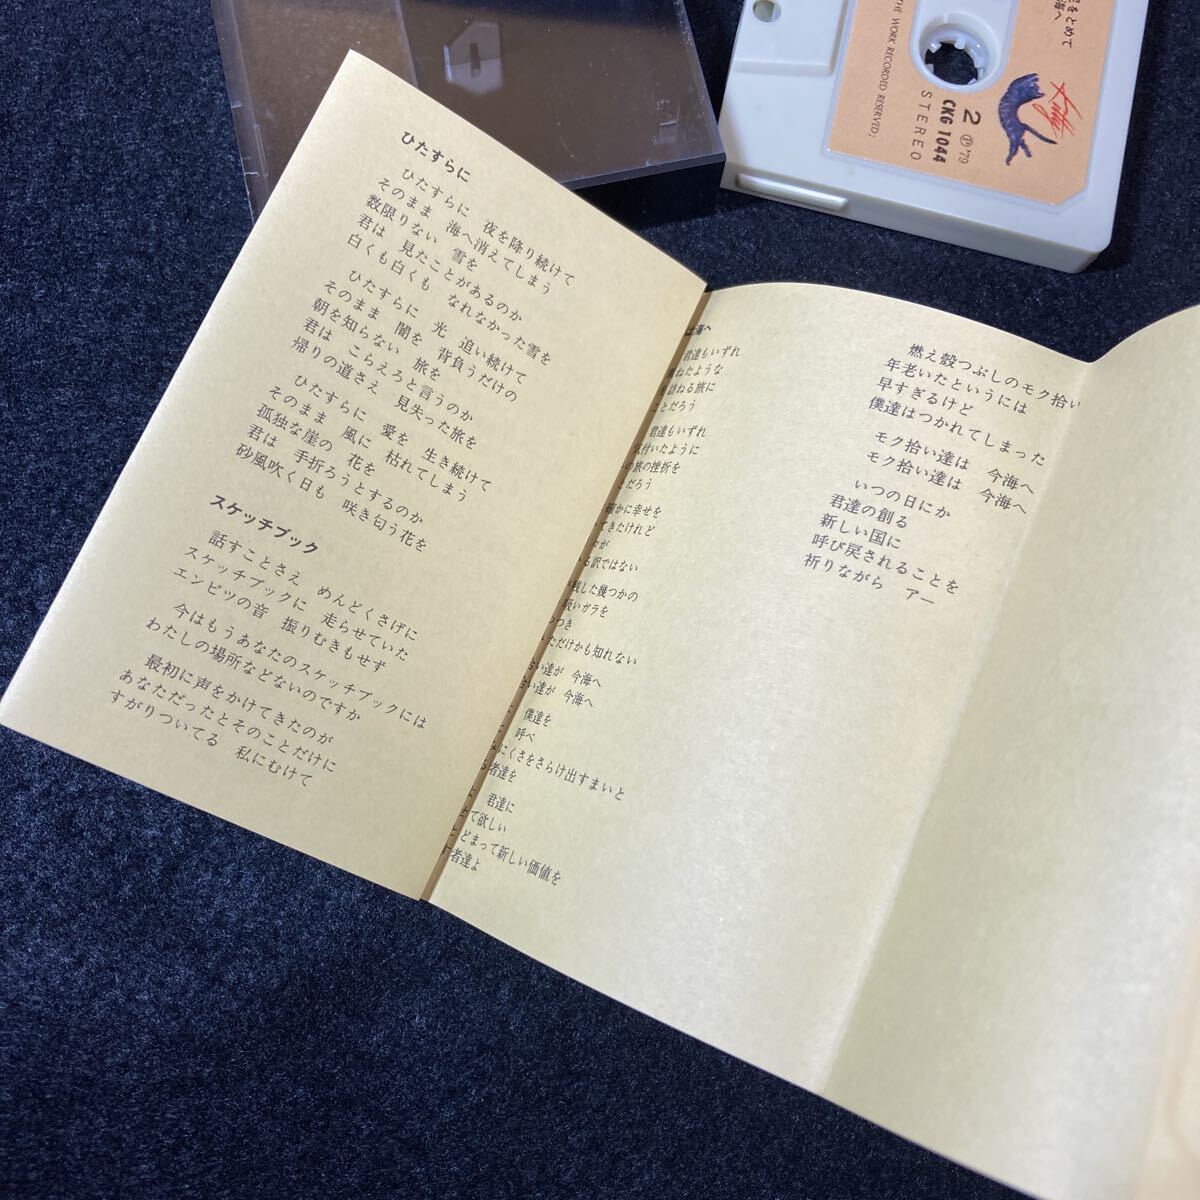 ひたすらに
ひたすらに　夜を降り続けて
そのまま　海へ消えてしまう
数限りない　雪を
君は　見たことがあるのか
白くも白くも　なれなかった雪を
ひたすらに　光　追い続けて
そのまま　闇を　背負うだけの
朝を知らない　旅を
君は　こらえろと言うのか
帰りの道さえ　見失った旅を
ひたすらに　愛を　生き続けて
そのまま　風に　枯れてしまう
孤独な崖の　花を
君は　手折ろうとするのか
砂風吹く日も　咲き匂う花を
スケッチブック
話すことさえ　めんどくさげに
スケッチブックに　走らせていた
エンピツの音　振りむきもせず
今はもうあなたのスケッチブックには
わたしの場所などないのですか
最初に声をかけてきたのが
あなただったとそのことだけに
すがりついてる　私にむけて
海へ
君達もいずれ
ねたような
訪ねる旅に
ことだろう
君達もいずれ
気付いたように
の旅の挫折を
とだろう
確かに幸せを
てきたけれど
が
る訳ではない
残した幾つかの
吸いガラを
つき
ただけかも知れない
い達が　今海へ
い達が　今海へ
僕達を
呼べ
みにくさをさらけ出すまいと
者達を
君達に
せて欲しい
どまって新しい価値を
者達よ
燃え殻つぶしのモク拾い
年老いたというには
早すぎるけど
僕達はつかれてしまった
モク拾い達は　今海へ
モク拾い達は　今海へ
いつの日にか
君達の創る
新しい国に
呼び戻されることを
祈りながら　アー
をとめて
海へ
THE WORK RECORDED RESERVED;
2
Ⓟ '79
CKG 1044
STEREO